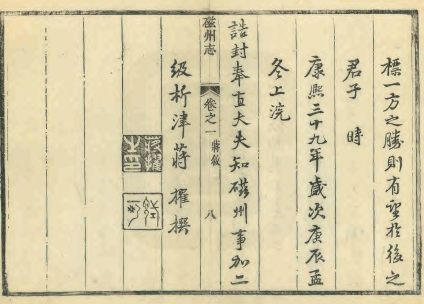 標一方之勝則有望於後之
君子　時
康熙三十九年歲次庚辰孟
冬上浣
誥封奉直大夫知磁州事加二
磁州志
卷之一　蔣敘
八
級析津蔣擢撰
蔣擢之印